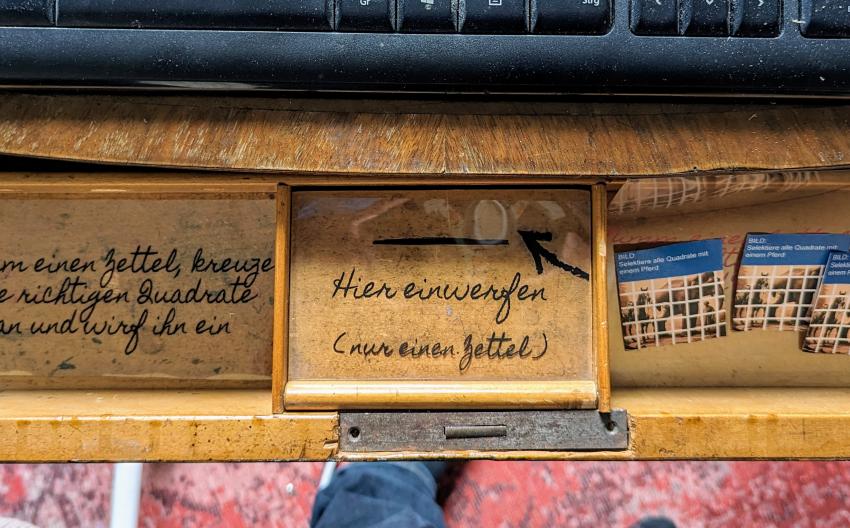 Gr
Strg
m einen Zettel, kreuze
e richtigen Quadrate
an und wirf ihn ein
Hier einwerfen
(nur einen Zettel)
BILD:
Selektiere alle Quadrate mit
einem Pferd
BILD:
Selektiere alle Quadrate mit
einem Pferd
BILD:
Selekti
einem